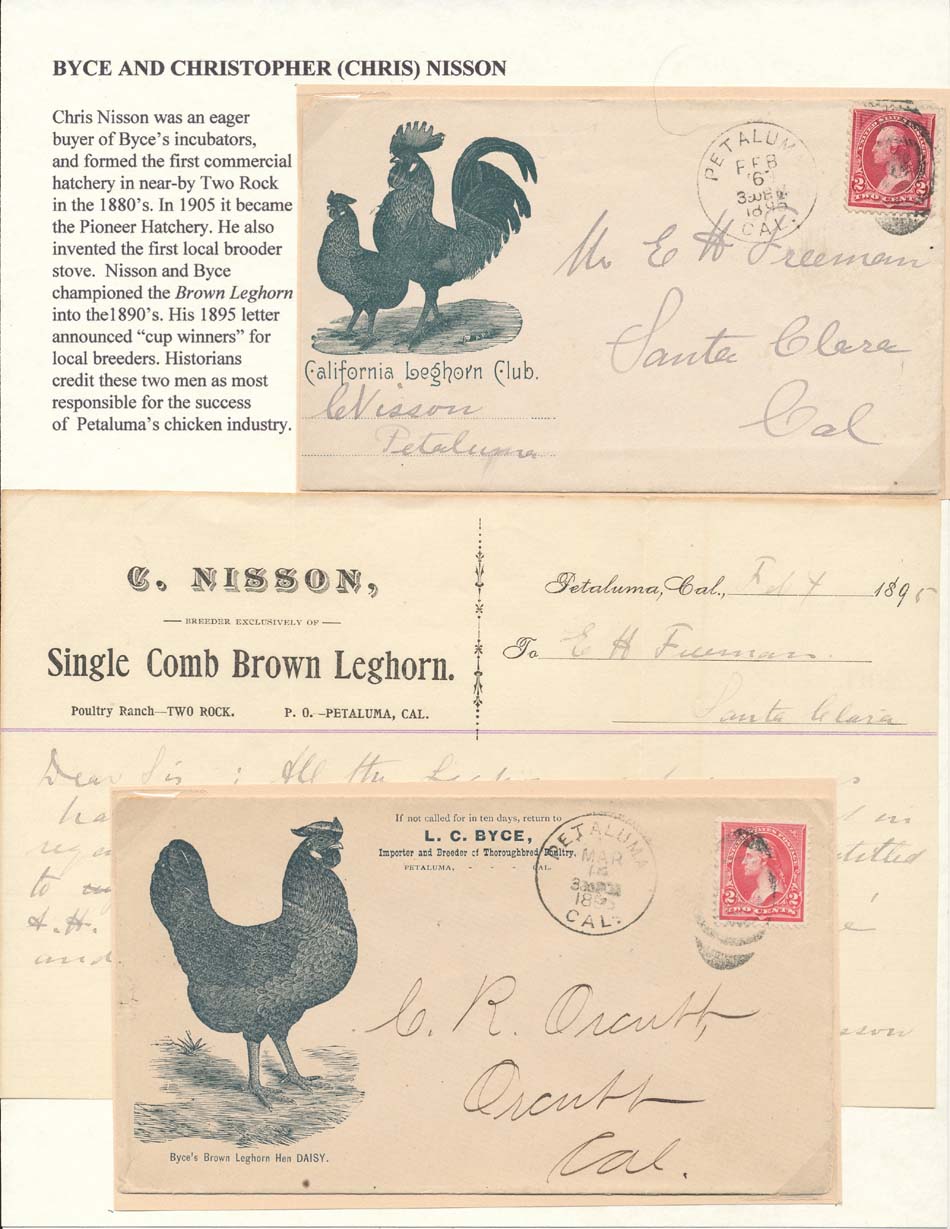 BYCE AND CHRISTOPHER (CHRIS) NISSON
Chris Nisson was an eager
buyer of Byce's incubators,
and formed the first commercial
hatchery in near-by Two Rock
in the 1880's. In 1905 it became
the Pioneer Hatchery. He also
invented the first local brooder
stove.  Nisson and Byce
championed the Brown Leghorn
into the1890's. His 1895 letter
announced “cup winners” for
local breeders. Historians
credit these two men as most
responsible for the success
of  Petaluma's chicken industry.
California Leghorn Club.
C Nisson
Petaluma
PETALUMA
FEB
6
CAL.
2 2
TWO CENTS
Mr E H Freeman
Santa Clara
Cal
C. NISSON,
BREEDER EXCLUSIVELY OF
Single Comb Brown Leghorn.
Poultry Ranch—TWO ROCK. P. O.—PETALUMA, CAL.
Petaluma, Cal., Feb 4 1895
To E H Freeman
Santa Clara
Dear Sir : All the
to
H.H.
and
If not called for in ten days, return to
L. C. BYCE,
Importer and Breeder of Thoroughbred Poultry.
PETALUMA, - - - CAL.
PETALUMA
MAR
CAL.
2 2
TWO CENTS
C. R. Orcutt,
Orcutt
Cal.
Byce's Brown Leghorn Hen DAISY.